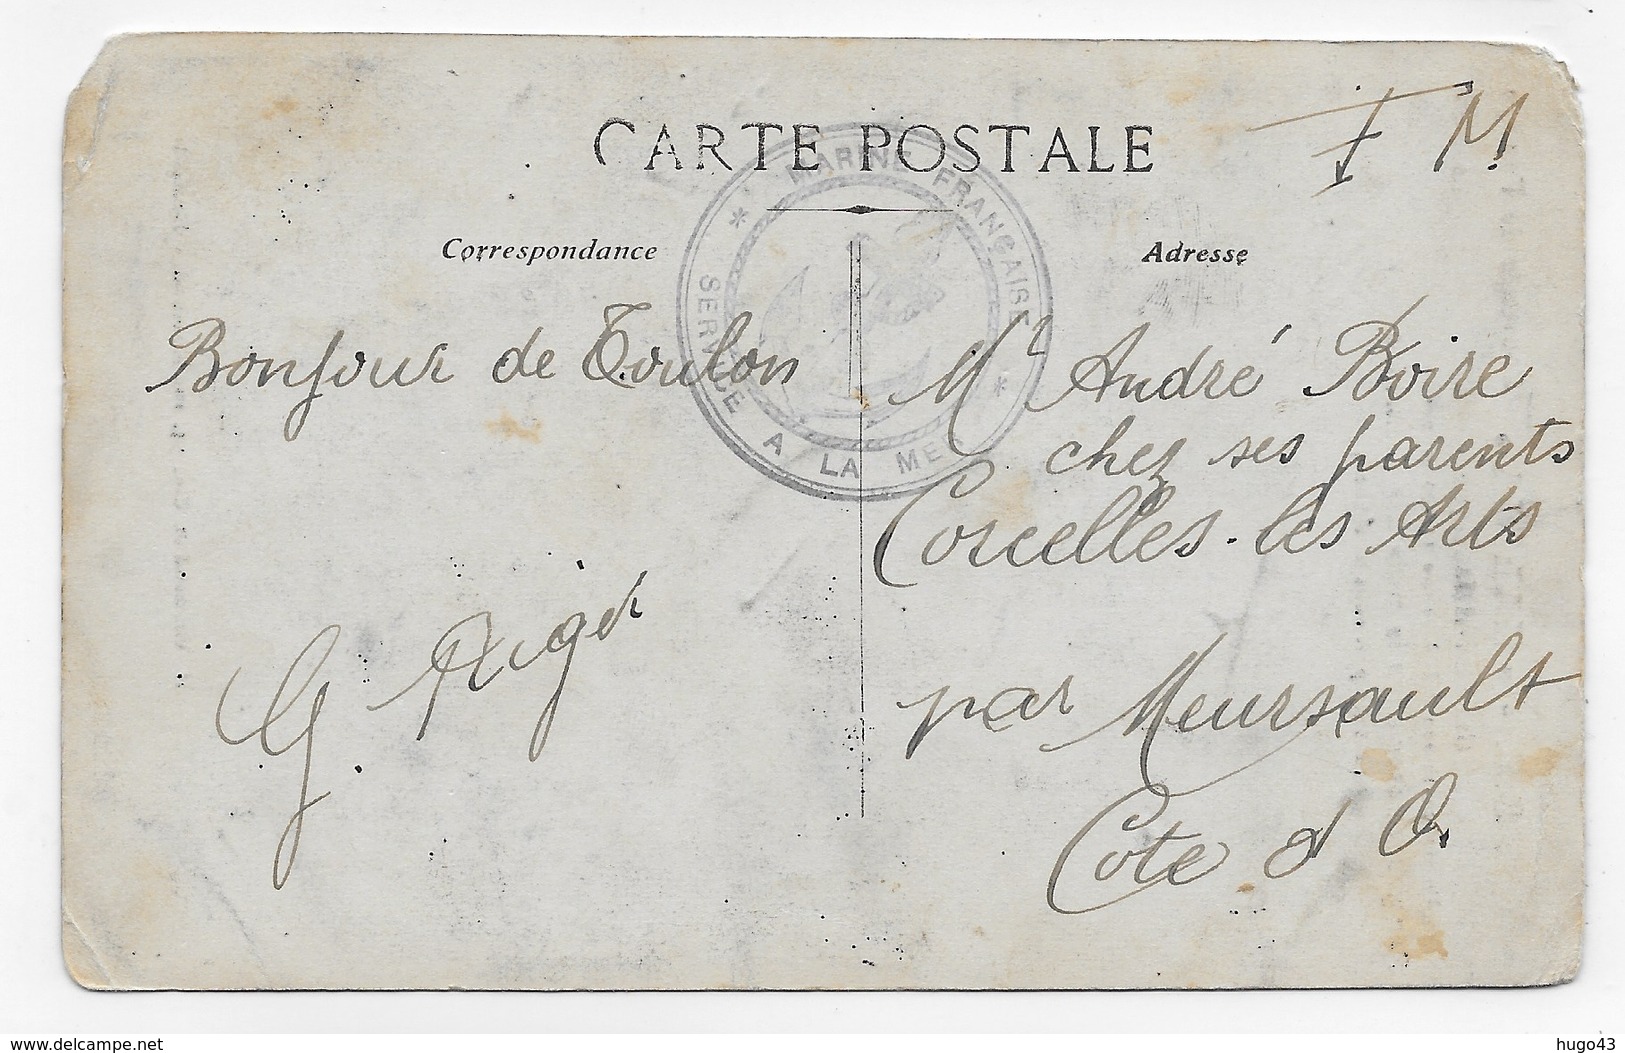 CARTE POSTALE
F M
Correspondance
Adresse
* MARINE FRANÇAISE *
SERVICE A LA MER
Bonjour de Toulon
Mr André Boire
chez ses parents
Corcelles-les Arts
par Meursault
Cote d O.
G.
delcampe.net
hugo43